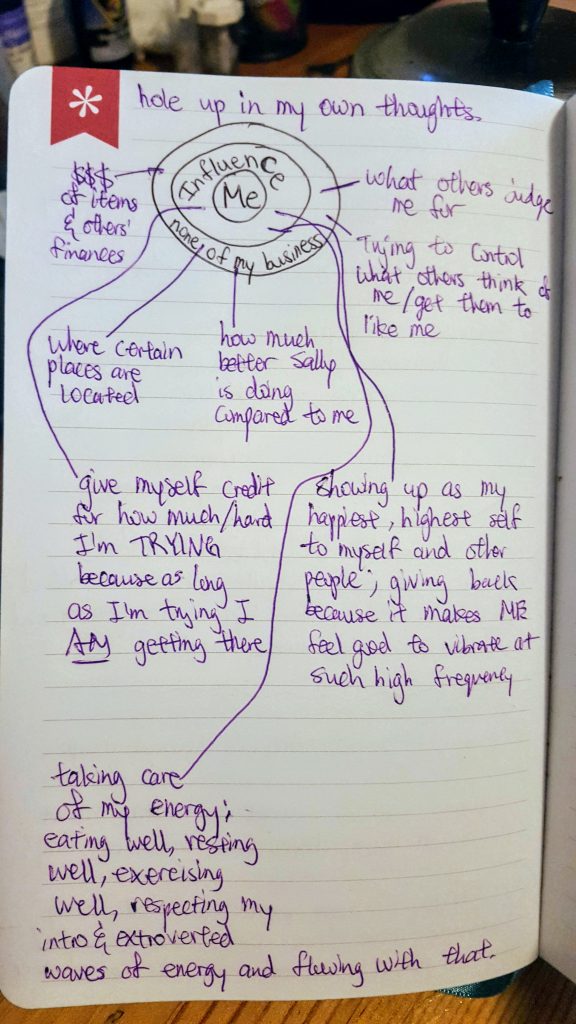 hole up in my own thoughts.
Influence
Me
none of my business
$$$
of items
& others'
finances
what others judge
me for
Trying to control
what others think of
me/get them to
like me
where certain
places are
located
how much
better Sally
is doing
compared to me
give myself credit
for how much/hard
I'm TRYING
because as long
as I'm trying I
AM getting there
showing up as my
happiest, highest self
to myself and other
people; giving back
because it makes ME
feel good to vibrate at
such high frequency
taking care
of my energy;
eating well, resting
well, exercising
well, respecting my
intro & extroverted
waves of energy and flowing with that.